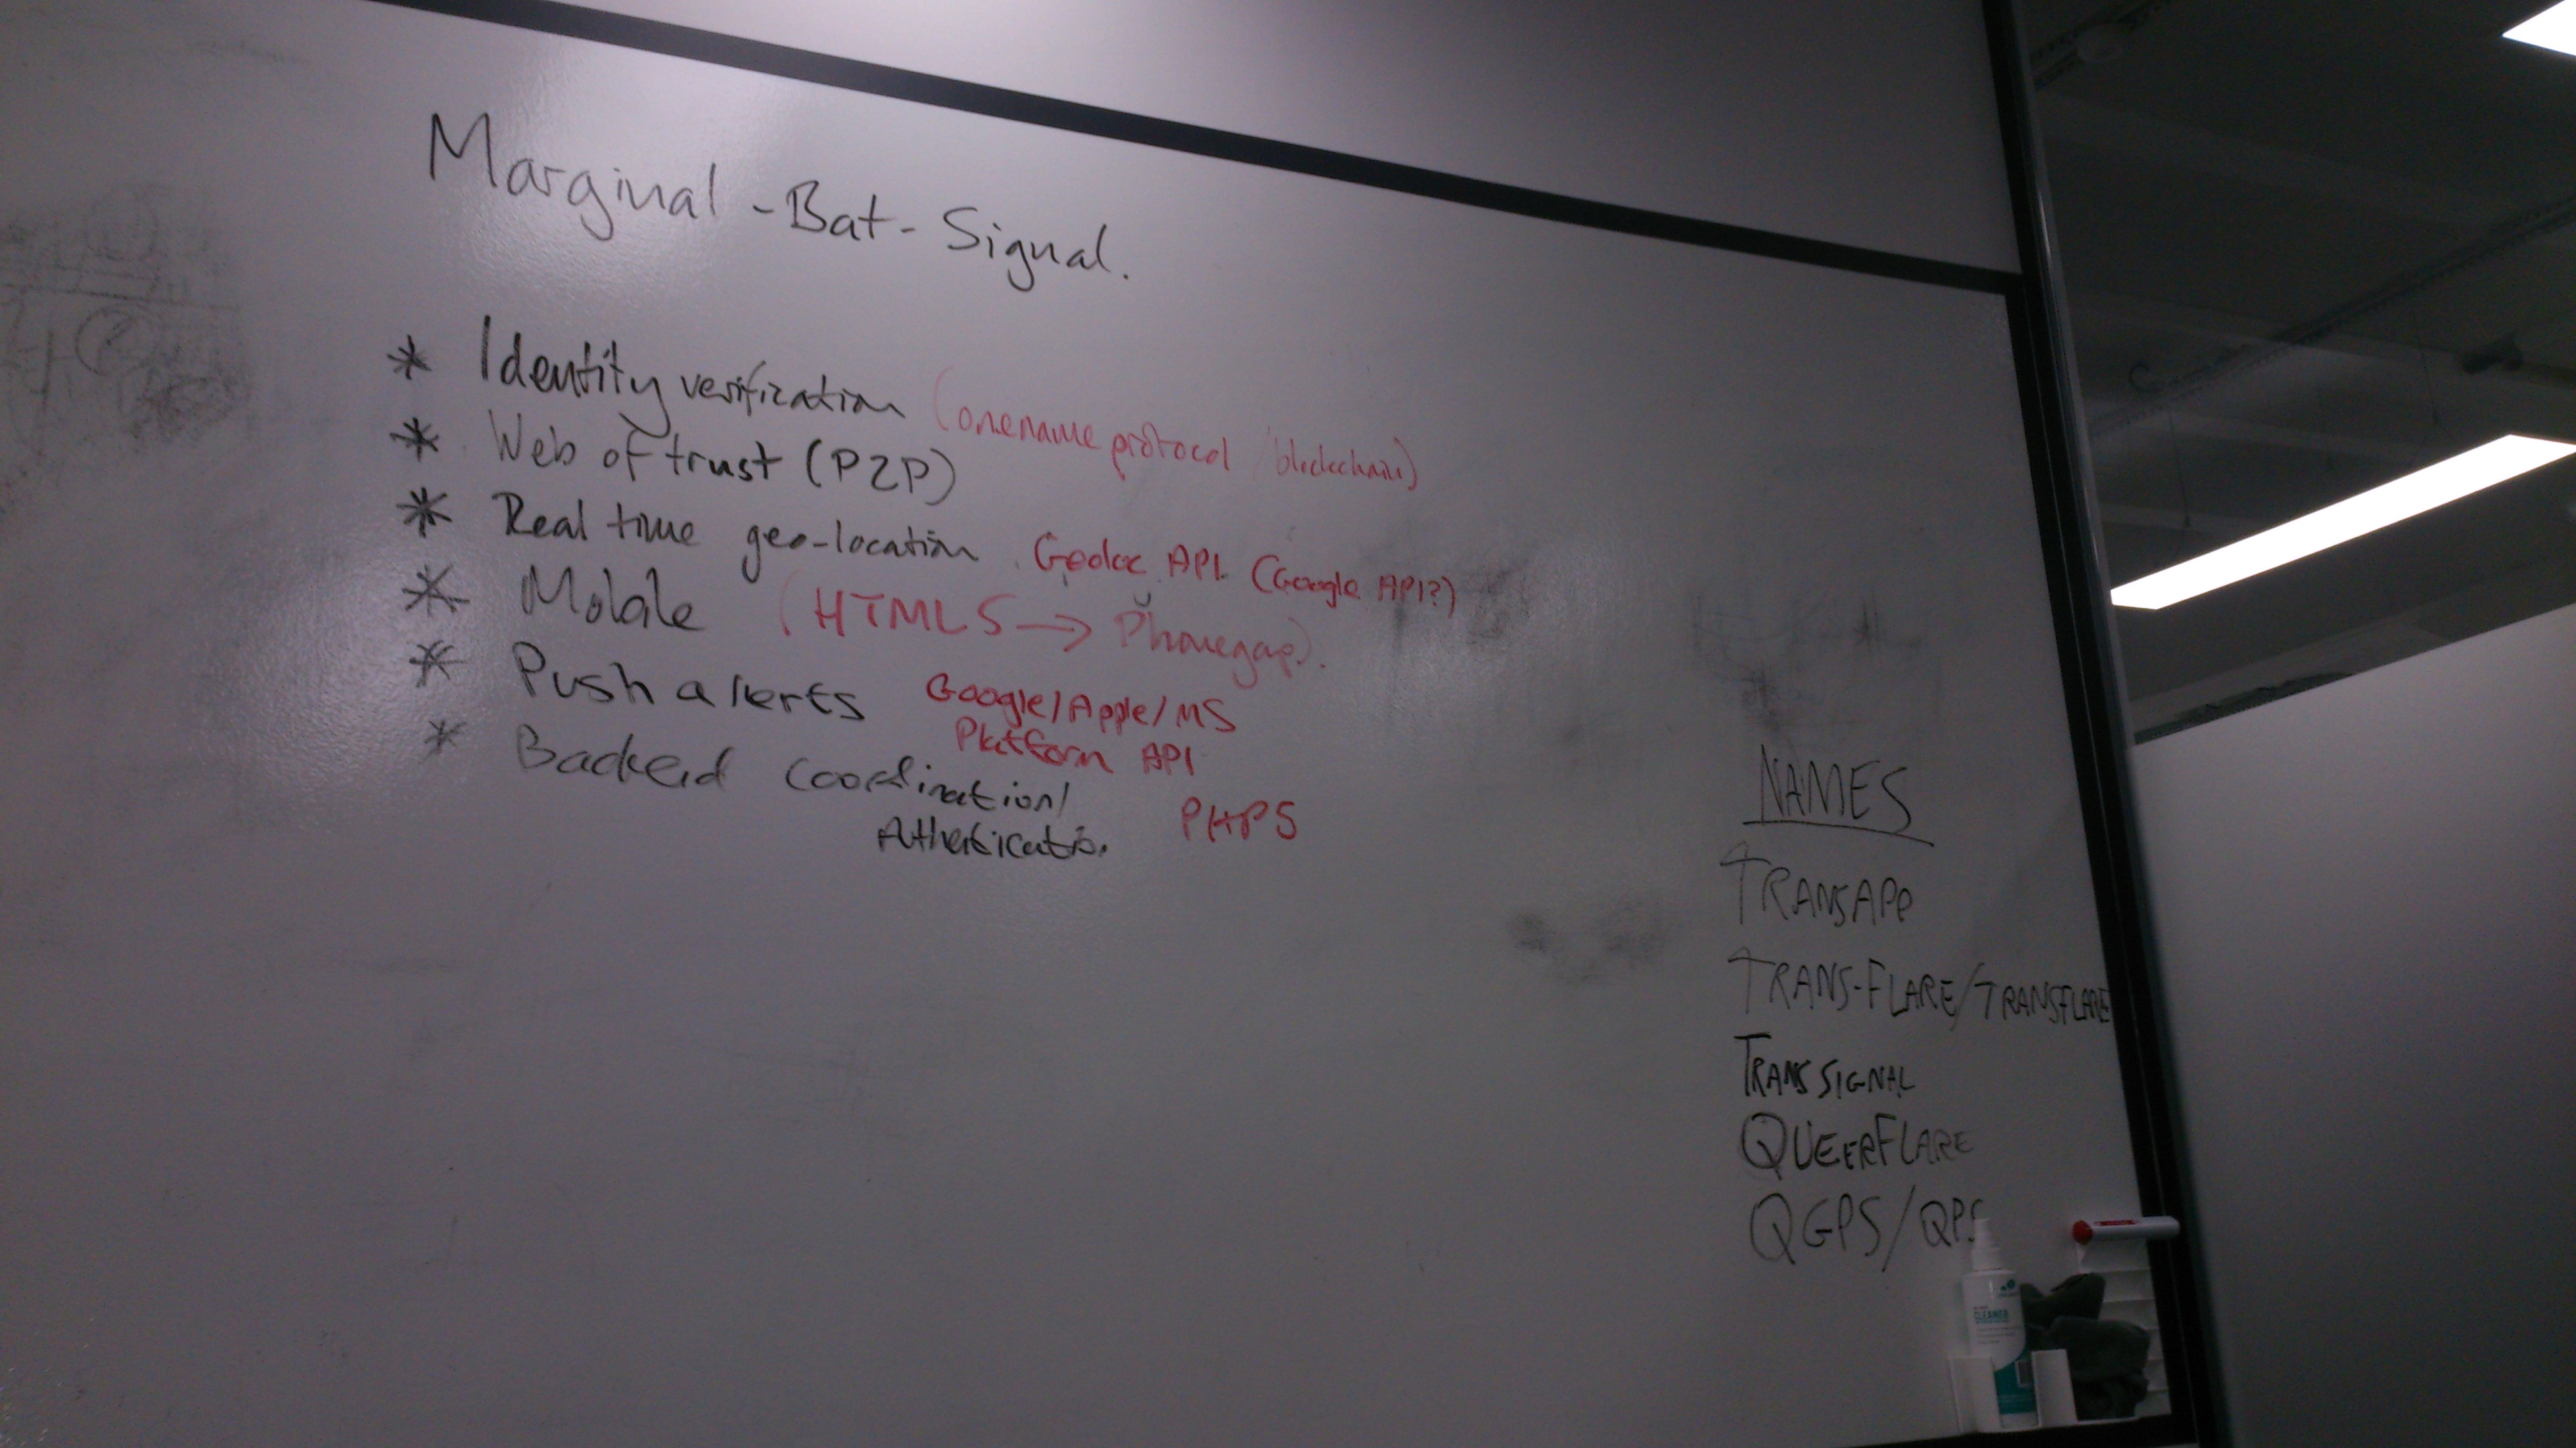 Marginal-Bat-Signal.
* Identity verification (onename protocol / blockchain)
* Web of trust (P2P)
* Real time geo-location . Geoloc API. (Google API?)
* Mobile (HTML5 → Phonegap).
* Push alerts Google/Apple/MS
Platform API
* Backend Coordination/
Authentication PHP5
NAMES
TRANSAPP
TRANS-FLARE/TRANSFLARE
TRANSSIGNAL
QUEERFLARE
QGPS/QPS
CLEANER